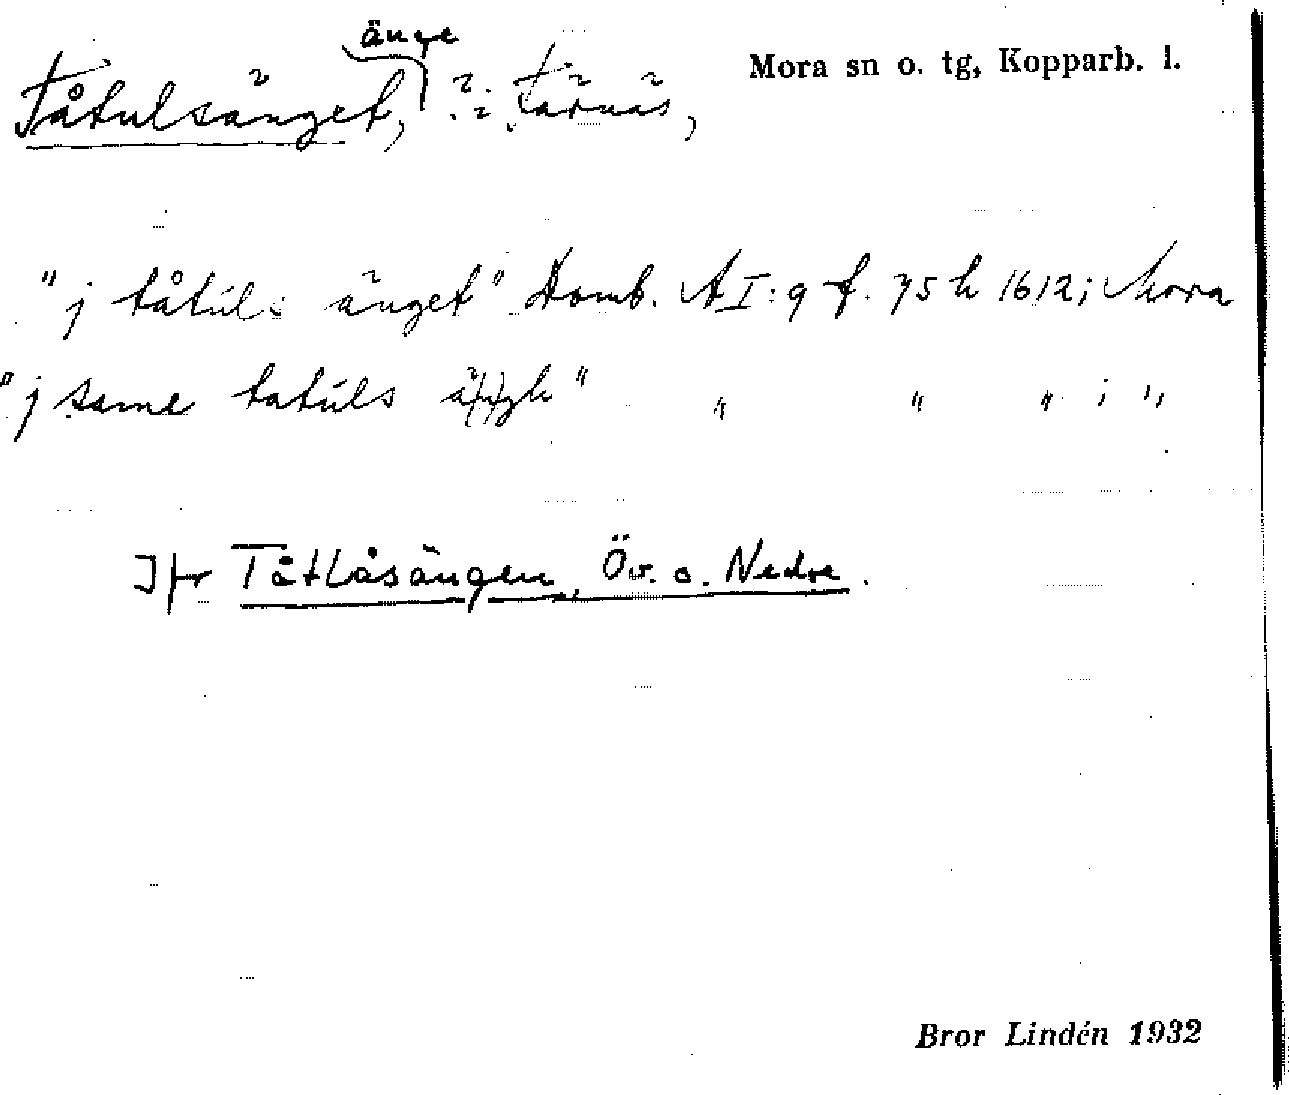 änge
Tåtulsänget, ? Färnäs,
Mora sn o. tg, Kopparb. l.
"j tåtúls änget" Domb. AI:9 f. 75 h 1612; Mora
"j same tatúls ängh" " " " ; "
Jfr Tåtlåsängen, Öv. o. Nedre.
Bror Lindén 1932